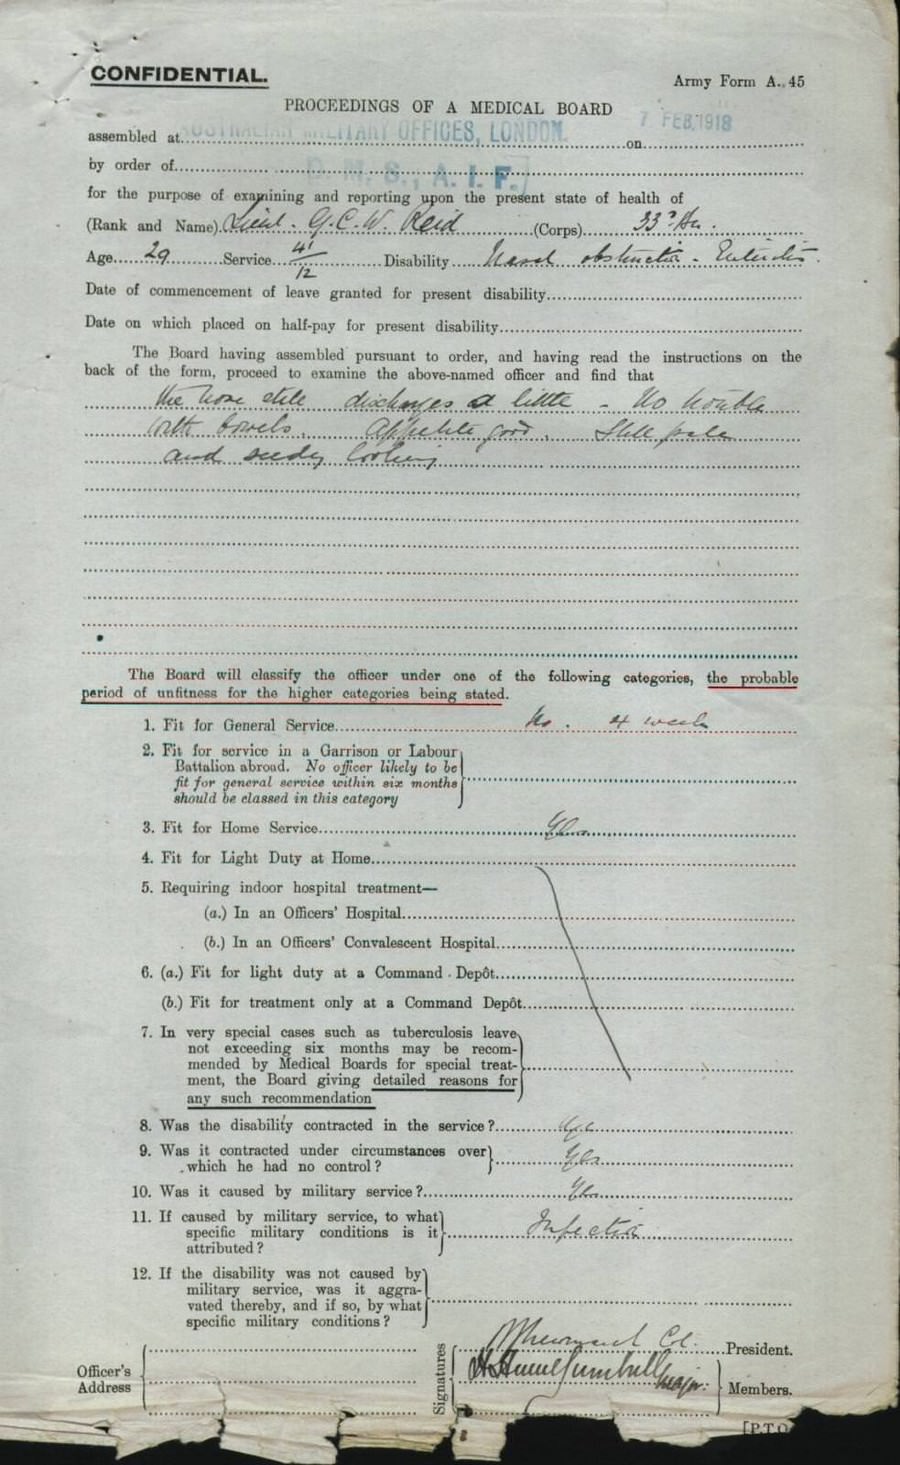 CONFIDENTIAL.
Army Form A. 45
PROCEEDINGS OF A MEDICAL BOARD
assembled at AUSTRALIAN MILITARY OFFICES, LONDON. on 7 FEB. 1918
by order of D. M. S., A. I. F.
for the purpose of examining and reporting upon the present state of health of
(Rank and Name) Lieut. G. C. W. Reid (Corps) 33rd Bn.
Age 29 Service 4/12 Disability Nasal obstruction - Enteritis.
Date of commencement of leave granted for present disability
Date on which placed on half-pay for present disability
The Board having assembled pursuant to order, and having read the instructions on the
back of the form, proceed to examine the above-named officer and find that
the nose still discharges a little - No trouble
with bowels. Appetite good. Still pale
and seedy looking
The Board will classify the officer under one of the following categories, the probable
period of unfitness for the higher categories being stated.
1. Fit for General Service No. 4 weeks
2. Fit for service in a Garrison or Labour
Battalion abroad. No officer likely to be
fit for general service within six months
should be classed in this category
3. Fit for Home Service Yes
4. Fit for Light Duty at Home
5. Requiring indoor hospital treatment—
(a.) In an Officers' Hospital
(b.) In an Officers' Convalescent Hospital
6. (a.) Fit for light duty at a Command Depôt
(b.) Fit for treatment only at a Command Depôt
7. In very special cases such as tuberculosis leave
not exceeding six months may be recom-
mended by Medical Boards for special treat-
ment, the Board giving detailed reasons for
any such recommendation
8. Was the disability contracted in the service? Yes
9. Was it contracted under circumstances over
which he had no control? Yes
10. Was it caused by military service? Yes
11. If caused by military service, to what
specific military conditions is it
attributed? Infection
12. If the disability was not caused by
military service, was it aggra-
vated thereby, and if so, by what
specific military conditions?
Officer's
Address
Signatures
President.
Major.
Members.
[P.T.O